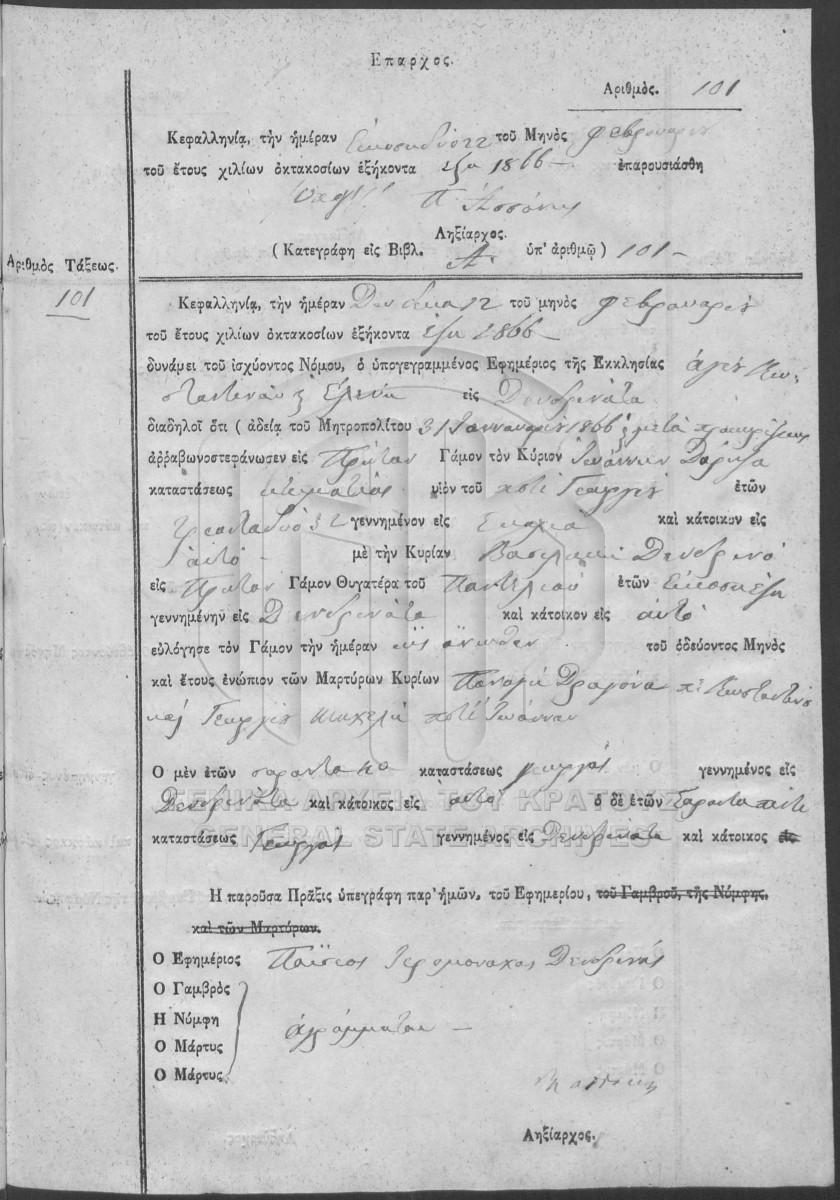 Επαρχος.
Αριθμὸς. 101
Κεφαλληνίᾳ, τὴν ἡμέραν 22 τοῦ Μηνὸς Φεβρουαρίου
τοῦ ἔτους χιλίων ὀκτακοσίων ἑξήκοντα ἕξη 1866 — ἐπαρουσιάσθη
Ληξίαρχος.
( Κατεγράφη εἰς Βιβλ. Α. ὑπ' ἀριθμῷ ) 101 -
Αριθμὸς Τάξεως.
101
Κεφαλληνίᾳ, τὴν ἡμέραν Δώδεκα 12 τοῦ μηνὸς Φεβρουαρίου
τοῦ ἔτους χιλίων ὀκτακοσίων ἑξήκοντα ἕξη 1866 —
δυνάμει τοῦ ἰσχύοντος Νόμου, ὁ ὑπογεγραμμένος Εφημέριος τῆς Εκκλησίας ἁγίου Κων-
σταντίνου & Ελένη εἰς Δενδρινάτα
διαδηλοῖ ὅτι ( ἀδείᾳ τοῦ Μητροπολίτου 31 Ιαννουαρίου 1866 & μετὰ
ἀῤῥαβωνοστεφάνωσεν εἰς Πρῶτον Γάμον τὸν Κύριον Ιωάννην
καταστάσεως κτηματίας υἱὸν τοῦ ποτὲ Γεωργίου ἐτῶν
τριανταδύο 32 γεννημένον εἰς καὶ κάτοικον εἰς
αὐτό - μὲ τὴν Κυρίαν Βασιλικὴ Δενδρινό
εἰς Πρῶτον Γάμον Θυγατέρα τοῦ Παντελιοῦ ἐτῶν Εἰκοσιέξη
γεννημένην εἰς Δενδρινάτα καὶ κάτοικον εἰς αὐτό
εὐλόγησε τὸν Γάμον τὴν ἡμέραν ὡς ἄνωθεν τοῦ ὁδεύοντος Μηνὸς
καὶ ἔτους ἐνώπιον τῶν Μαρτύρων Κυρίων Παναγῆ Δραγόνα π: Κωσταντῖνο
καὶ Γεωργίου ποτὲ Ιωάννου
Ο μὲν ἐτῶν σαράντα καταστάσεως γεωργός γεννημένος εἰς
Δενδρινάτα καὶ κάτοικος εἰς αὐτό ὁ δὲ ἐτῶν Σαράντα πέντε
καταστάσεως Γεωργός γεννημένος εἰς Δενδρινάτα καὶ κάτοικος εἰς
Η παροῦσα Πρᾶξις ὑπεγράφη παρ' ἡμῶν, τοῦ Εφημερίου, τοῦ Γαμβροῦ, τῆς Νύμφης,
καὶ τῶν Μαρτύρων.
Ο Εφημέριος Παΐσιος Ιερομόναχος Δενδρινός
Ο Γαμβρὸς
Η Νύμφη
ἀγράμματοι —
Ο Μάρτυς
Ο Μάρτυς.
Ληξίαρχος.
ΓΕΝΙΚΑ ΑΡΧΕΙΑ ΤΟΥ ΚΡΑΤΟΥΣ
GENERAL STATE ARCHIVES